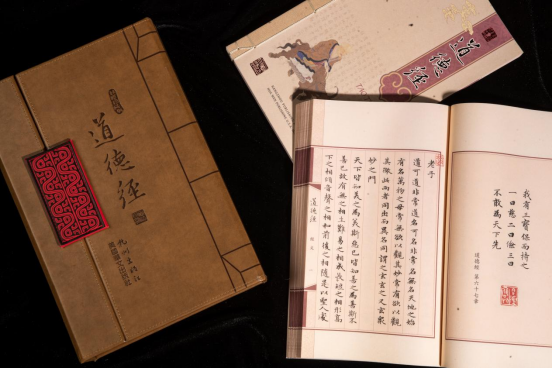 道德經
道德經
我有三寶保而持之
一曰慈二曰儉三曰
不敢為天下先
道德經 第六十七章
老子
道可道非常道名可名非常名無名天地之始
有名萬物之母常無欲以觀其妙常有欲以觀
其徼此兩者同出而異名同謂之玄玄之又玄眾
妙之門
天下皆知美之為美斯惡已皆知善之為善斯不
善已故有無之相生難易之相成長短之相形高
下之相傾音聲之相和前後之相隨是以聖人處
道德經